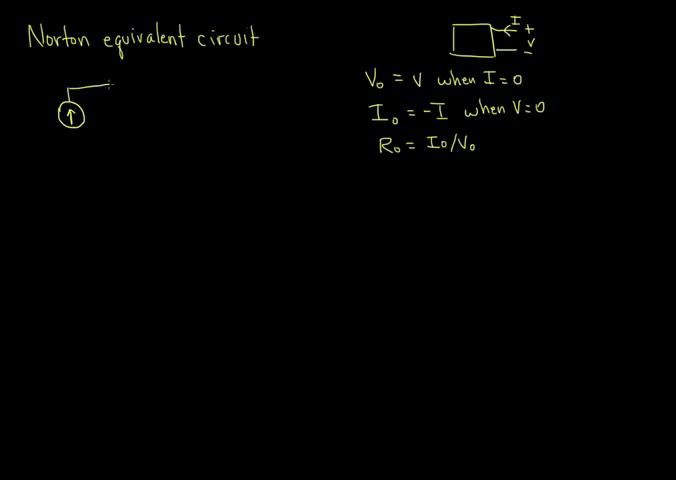 Norton equivalent circuit
I
+
V
−
V₀ = V when I = 0
I₀ = -I when V = 0
R₀ = I₀/V₀